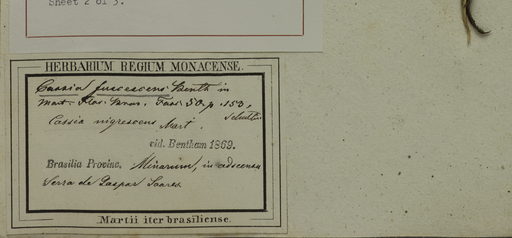 Sheet 2 of 3.
HERBARIUM REGIUM MONACENSE.
Cassia fuscescens Benth in
Mart. Flor. Bras. Fasc. 50. p. 153,
Cassia nigrescens Mart.
vid. Bentham 1869.
Brasilia Provinc. Minarum, in adscensu
Serra de Gaspar Soares
Martii iter brasiliense.